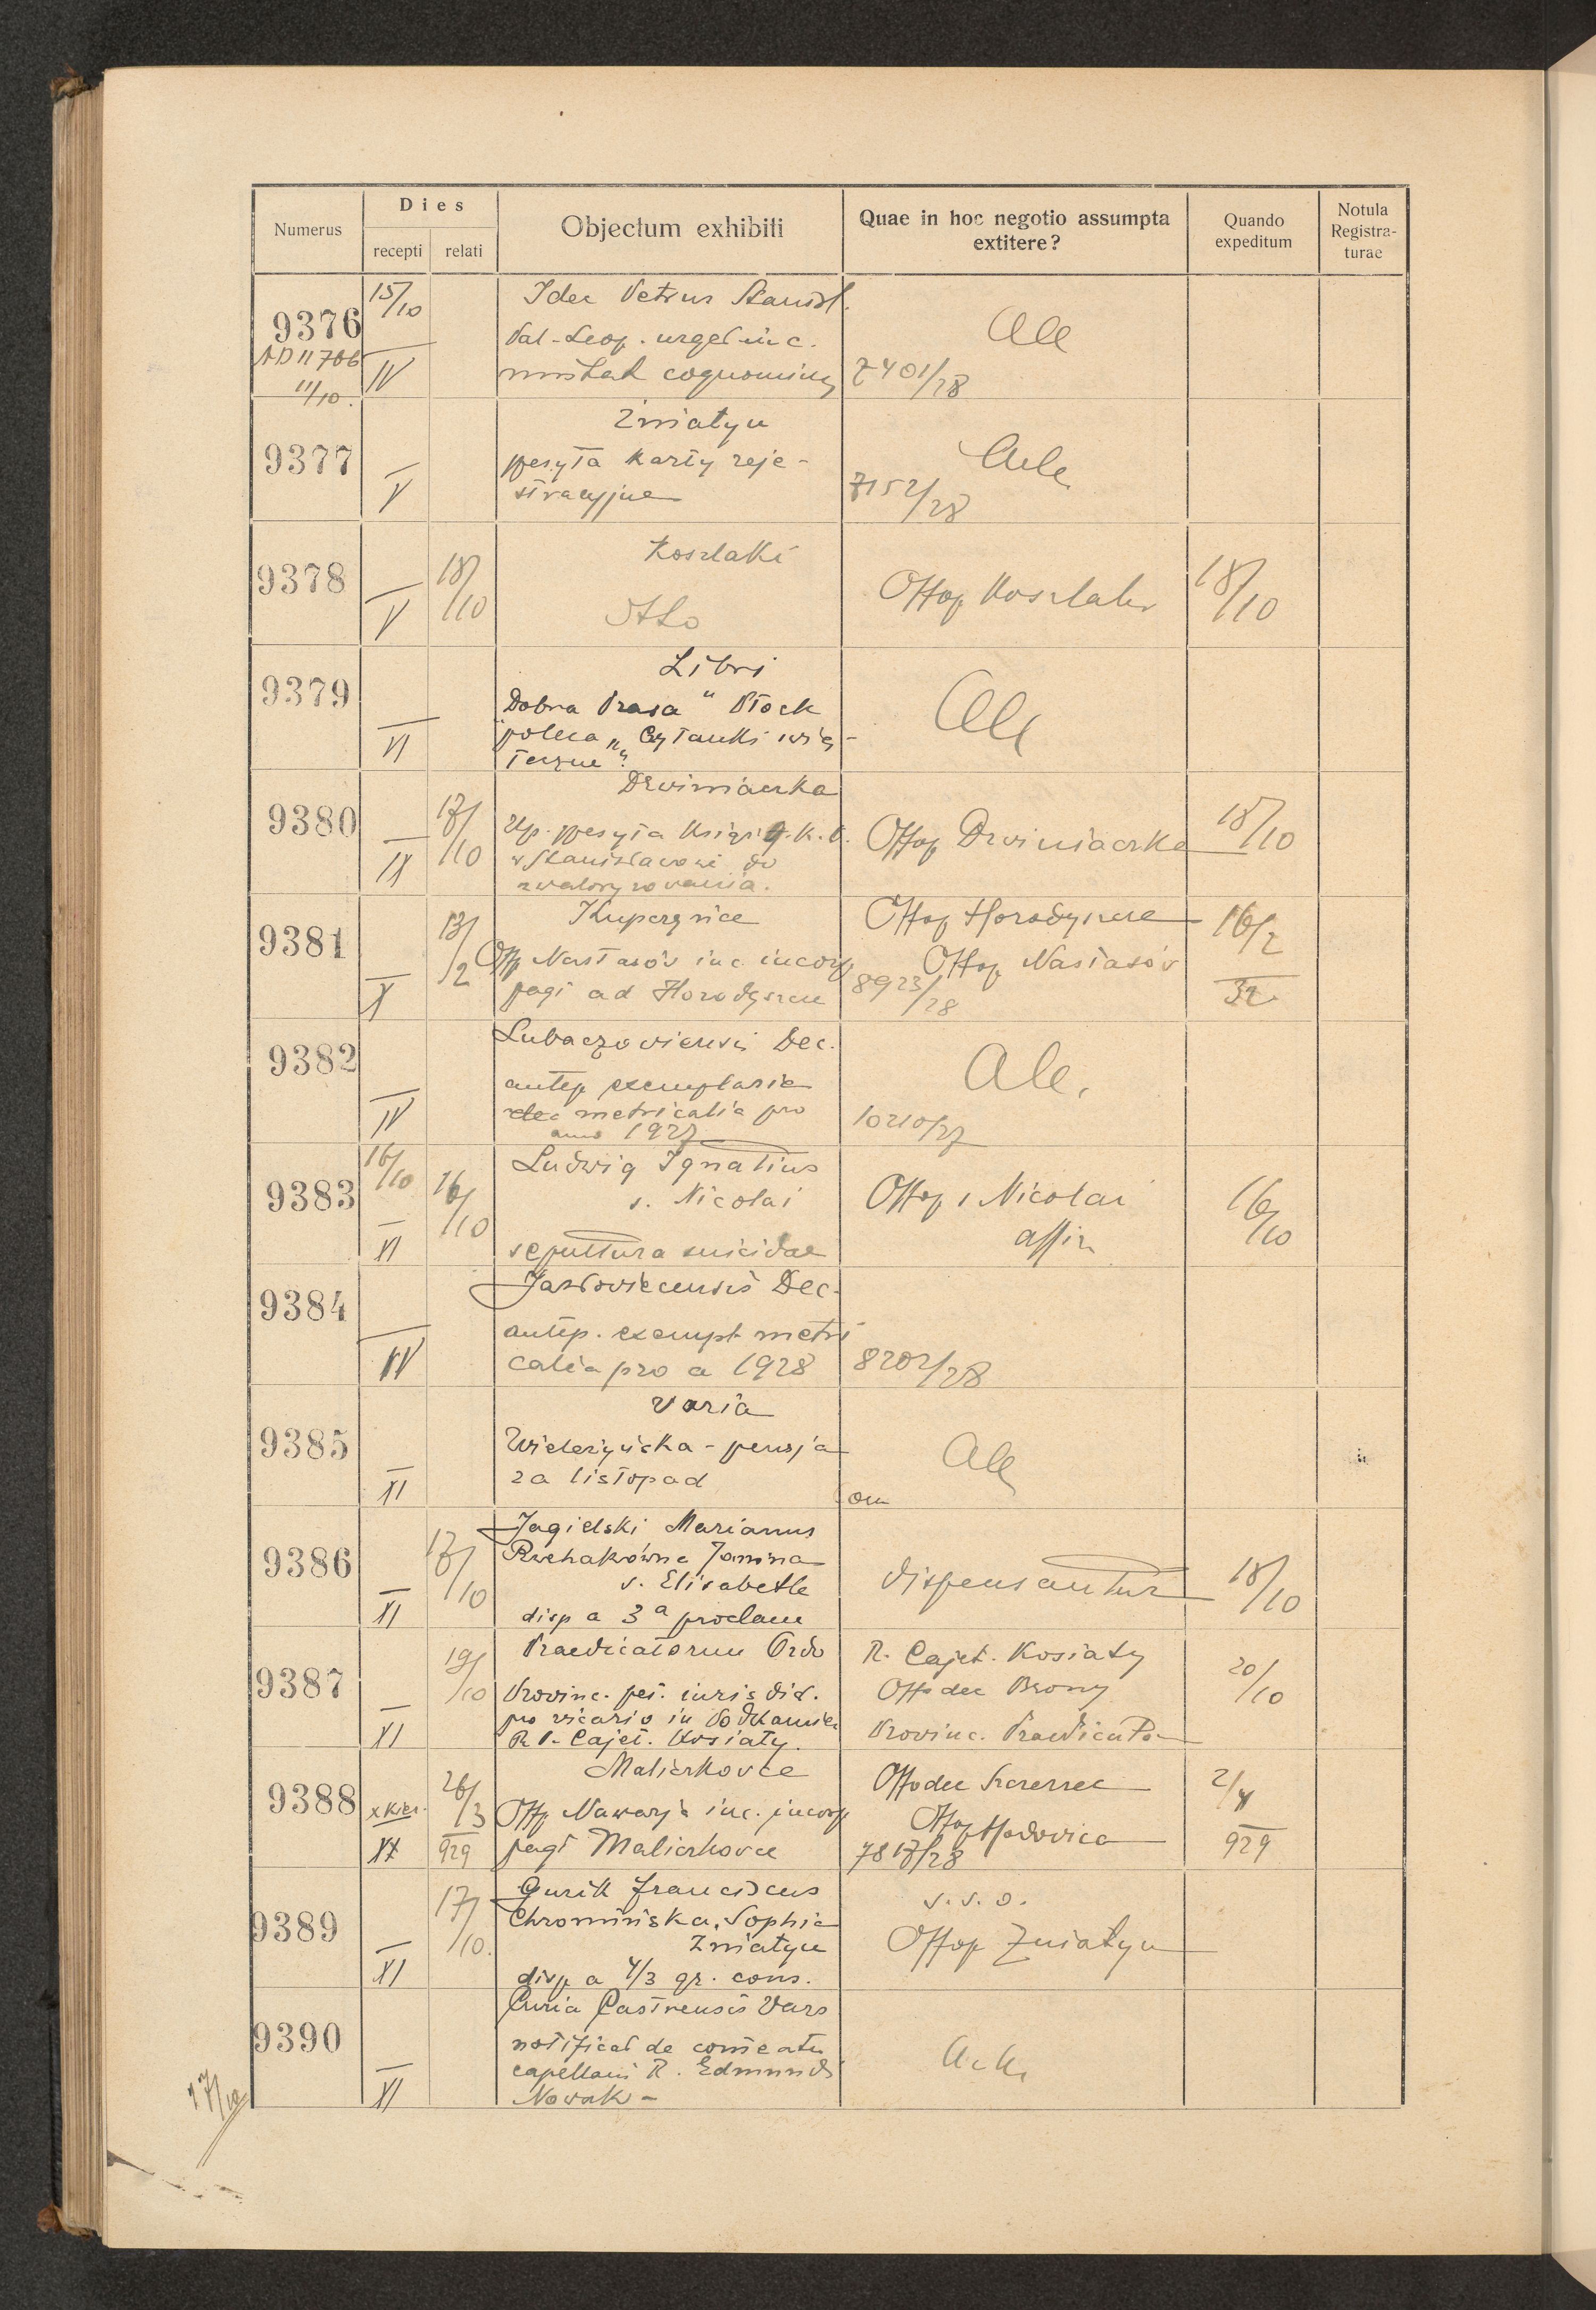 Numerus
Dies
recepti relati
Objectum exhibiti
Quae in hoc negotio assumpta
extitere?
Quando
expeditum
Notula
Registra-
turae
9376
15/10
11/10.
IV
Petrus Stanisl.
Pal-Leop. urget in c.
cognominis
7401/28
9377
V
Zniatyn
karty reje-
stracyjne
7152/28
9378
V
18/10
Koszlaki
Offop Koszlaki
18/10
9379
VI
Libri
Dobra Prasa" Płock
poleca „Czytanki świą-
teczne".
9380
IX
17/10
Drwiniaczka
Up. książ. K.O.
w Stanisławowie do
zwaloryzowania.
Offop Drwiniaczka
18/10
9381
X
13/2
Kupczyńce
Offp Nastasów inc. incorp
pagi ad Horodyszcze
Offop Horodyszcze
Offop Nastasów
8923/28
16/2
9382
IV
Lubaczoviensis Dec.
exemplaria
metricalia pro
anno 1927
10210/27
9383
16/10
XI
16/10
Ludwig Ignatius
s. Nicolai
sepultura suicidae
Offop s Nicolai
affir
16/10
9384
IV
Jazłoviecensis Dec.
exempl metri
calia pro a 1928
8202/28
9385
XI
Varia
pensja
za listopad
9386
XI
17/10
Jagielski Marianus
Janina
s. Elisabeth
disp a 3a proclam
dispensantur
18/10
9387
XI
19/10
Praedicatorum Ordo
Provinc. pet. iurisdid.
pro vicario in Podkamień
R P. Cajet. Kosiaty.
R. Cajet. Kosiaty
Offo dec Brony
Provinc. Praedicato
20/10
9388
XX
26/3
929
Maliczkovce
Offp Nawarja inc. incorp
pagi Maliczkovce
Offodec Szczerzec
Offop Hodovica
7817/28
2/4
929
9389
XI
17/10.
Gurik Franciscus
Chromińska Sophia
Zniatyn
disp a 4/3 gr. cons.
s.s.o.
Offop Zniatyn
9390
XI
Curia Castrensis Vars
notificat de comeatu
capellani R. Edmundi
Nowak -
17/10